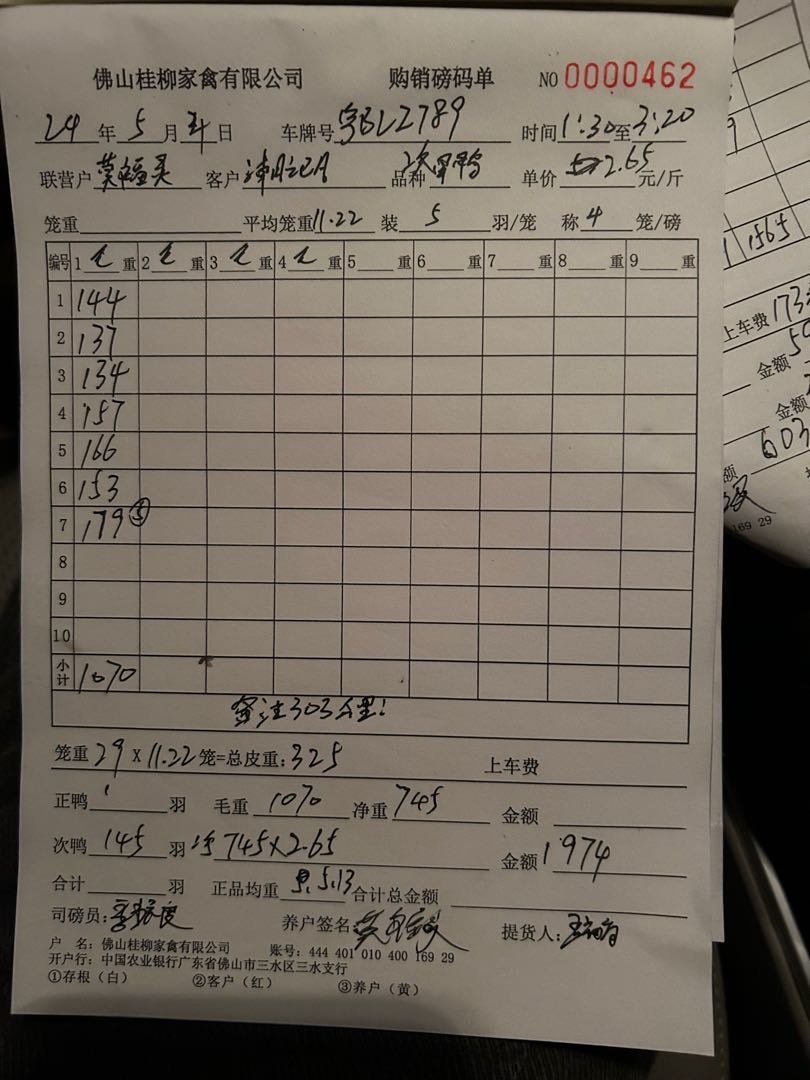 佛山桂柳家禽有限公司 购销磅码单 NO 0000462
24 年 5 月 日 车牌号 粤BL2789 时间 1:30 至 3:20
联营户 客户 品种 单价 2.65 元/斤
笼重 平均笼重 11.22 装 5 羽/笼 称 4 笼/磅
编号 1 重 2 重 3 重 4 重 5 重 6 重 7 重 8 重 9 重
1 144
2 137
3 134
4 157
5 166
6 153
7 179 ⑤
8
9
10
小计 1070
备注303公里!
笼重 29 X 11.22 笼=总皮重: 325 上车费
正鸭 羽 毛重 1070 净重 745 金额
次鸭 145 羽 745X2.65 金额 1974
合计 羽 正品均重 5.13 合计总金额
司磅员: 养户签名 提货人:
户 名: 佛山桂柳家禽有限公司 账号: 444 401 010 400 169 29
开户行: 中国农业银行广东省佛山市三水区三水支行
①存根（白） ②客户（红） ③养户（黄）
1565
上车费 173
金额 50
金额
额 603
169 29